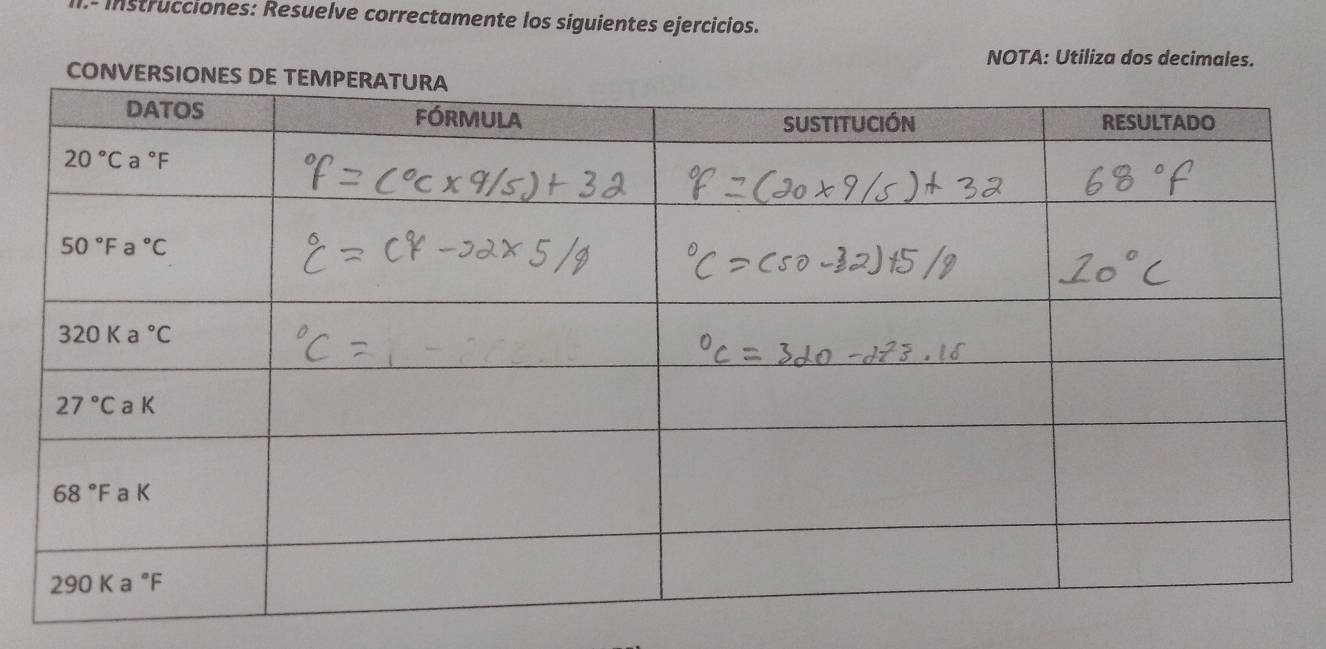 II.- Instrucciones: Resuelve correctamente los siguientes ejercicios.
NOTA: Utiliza dos decimales.
CONVERSIONES DE TEMPERATURA
DATOS FÓRMULA SUSTITUCIÓN RESULTADO
20 °C a °F °F = (°C x 9/5) + 32 °F = (20 x 9/5) + 32 68 °F
50 °F a °C °C = (°F - 32 x 5/9 °C = (50 - 32) + 5/9 10 °C
320 K a °C °C = °C = 320 - 273.15
27 °C a K
68 °F a K
290 K a °F